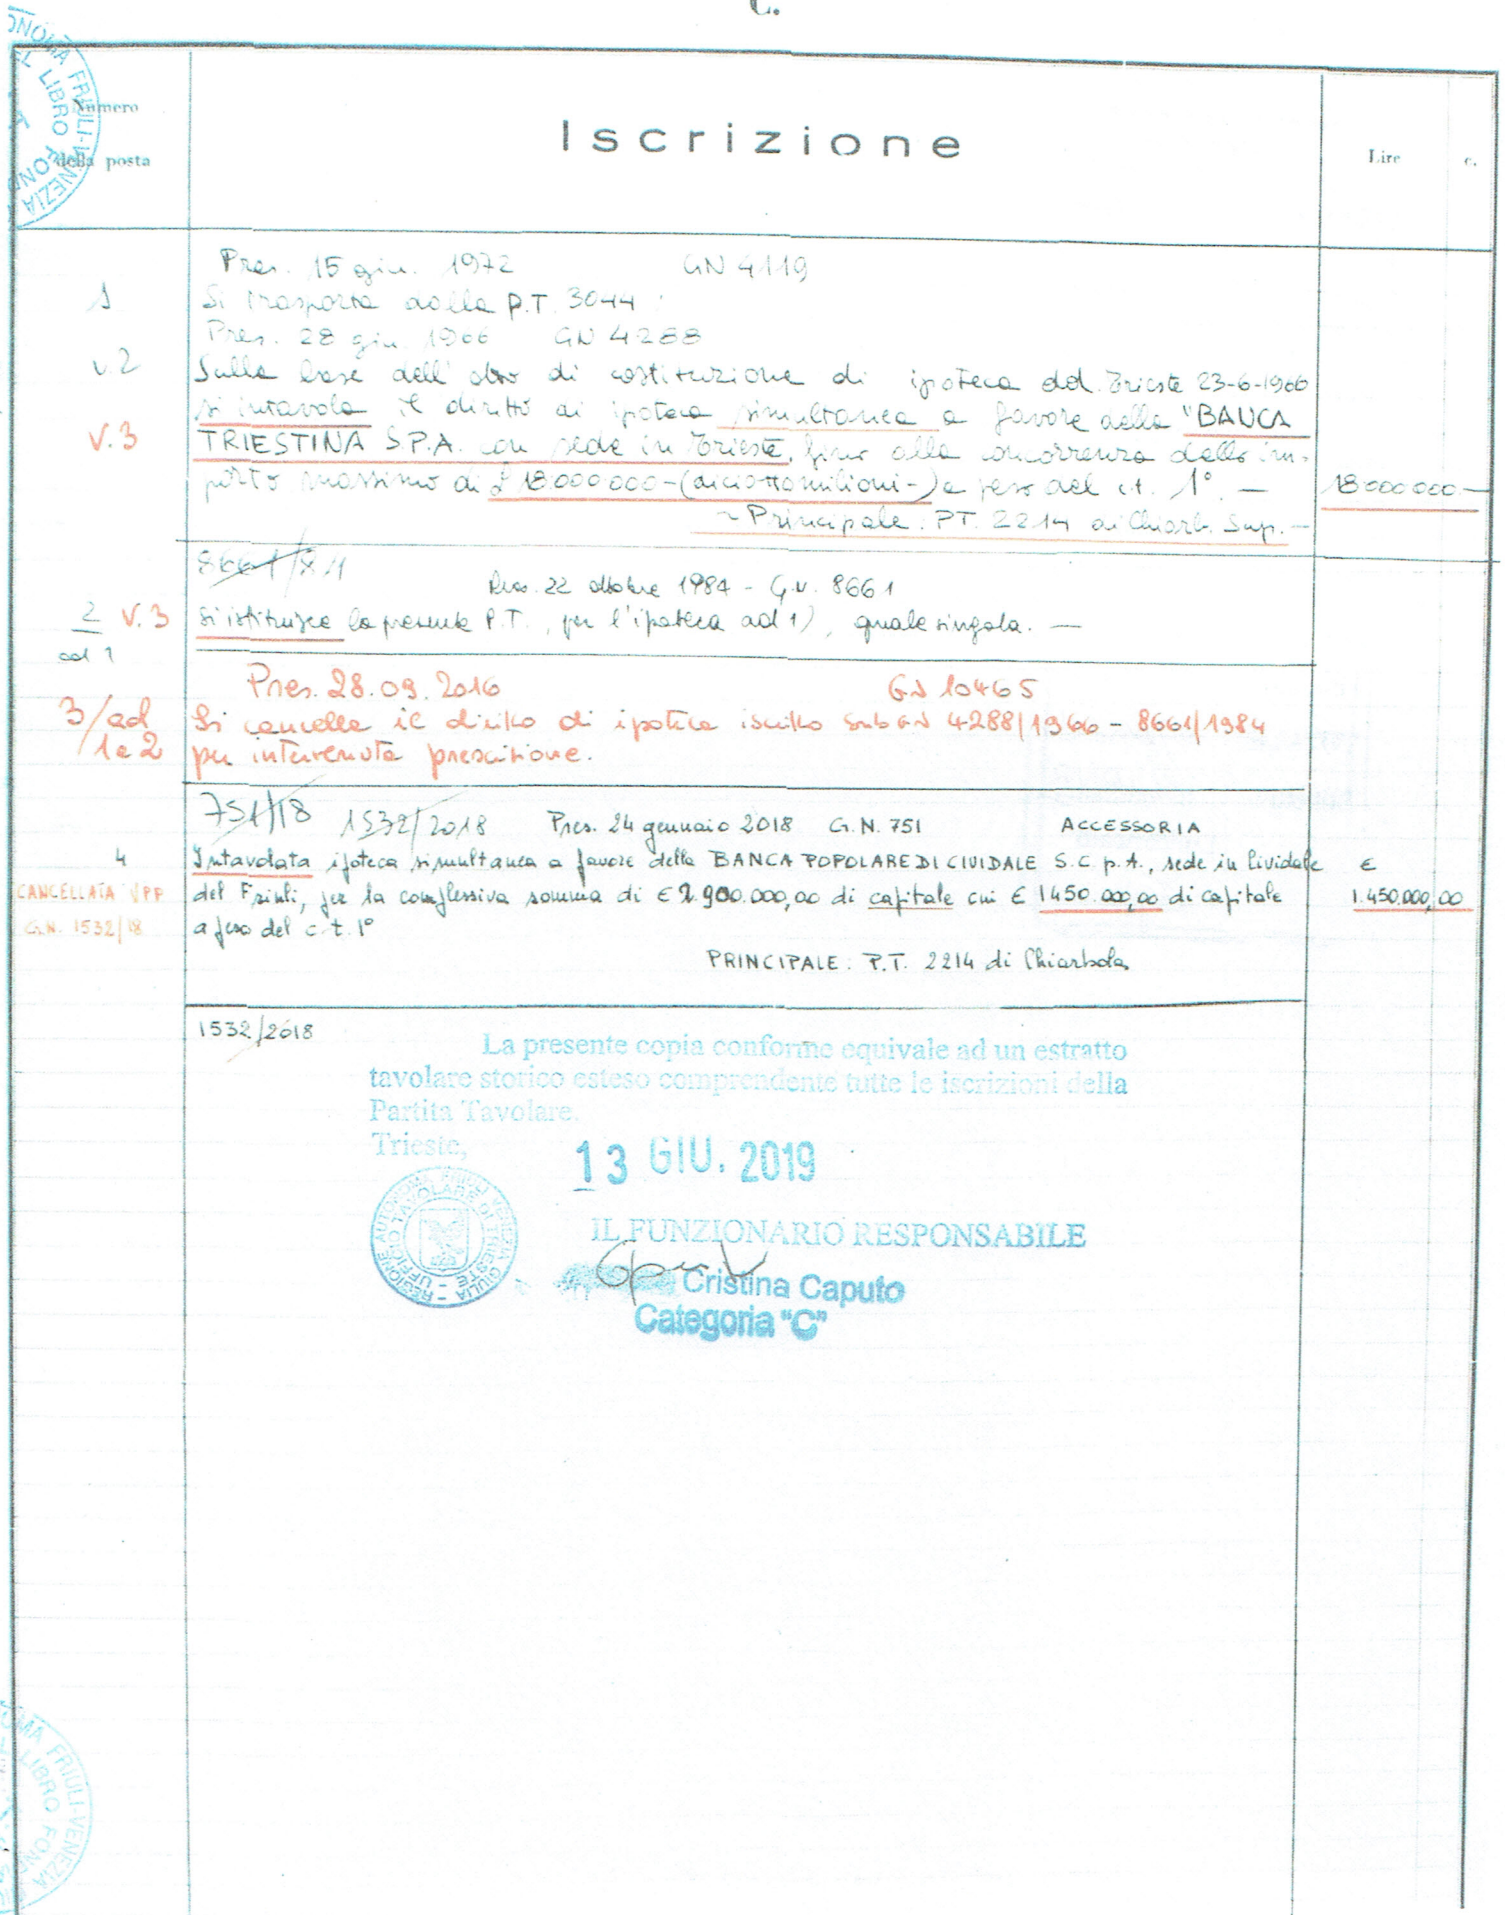 C.
Numero
della posta
Iscrizione
Lire
c.
Pres. 15 giu. 1972 GN 4119
1
Si trasporta dalla P.T. 3044 :
Pres. 28 giu. 1966 GN 4288
v.2
Sulla base dell' atto di costituzione di ipoteca dd. Trieste 23-6-1966
si intavola il diritto di ipoteca simultanea a favore della "BANCA
V.3
TRIESTINA S.P.A. con sede in Trieste, fino alla concorrenza dello im-
porto massimo di £ 18.000.000-(diciottomilioni-) a peso del c.t. 1°. —
18.000.000.-
~ Principale: PT. 2214 di Chiarb. Sup. -
8661/84
Pres. 22 ottobre 1984 - G.N. 8661
2 V.3
ad 1
Si istituisce la presente P.T., per l'ipoteca ad 1), quale singola. —
Pres. 28.09.2016 GN 10465
3/ad
1 e 2
Si cancella il diritto di ipoteca iscritto sub GN 4288/1966 - 8661/1984
per intervenuta prescrizione.
751/18 1532/2018 Pres. 24 gennaio 2018 G.N. 751 ACCESSORIA
4
Intavolata ipoteca simultanea a favore della BANCA POPOLARE DI CIVIDALE S.C.p.A., sede in Cividale
€
CANCELLATA
G.N. 1532/18
del Friuli, per la complessiva somma di € 2.900.000,00 di capitale cui € 1450.000,00 di capitale
1.450.000,00
a peso del c.t. 1°
PRINCIPALE: P.T. 2214 di Chiarbola
1532/2018
La presente copia conforme equivale ad un estratto
tavolare storico esteso comprendente tutte le iscrizioni della
Partita Tavolare.
Trieste,
13 GIU. 2019
REGIONE AUTONOMA FRIULI VENEZIA GIULIA
UFFICIO TAVOLARE DI TRIESTE
IL FUNZIONARIO RESPONSABILE
Cristina Caputo
Categoria "C"